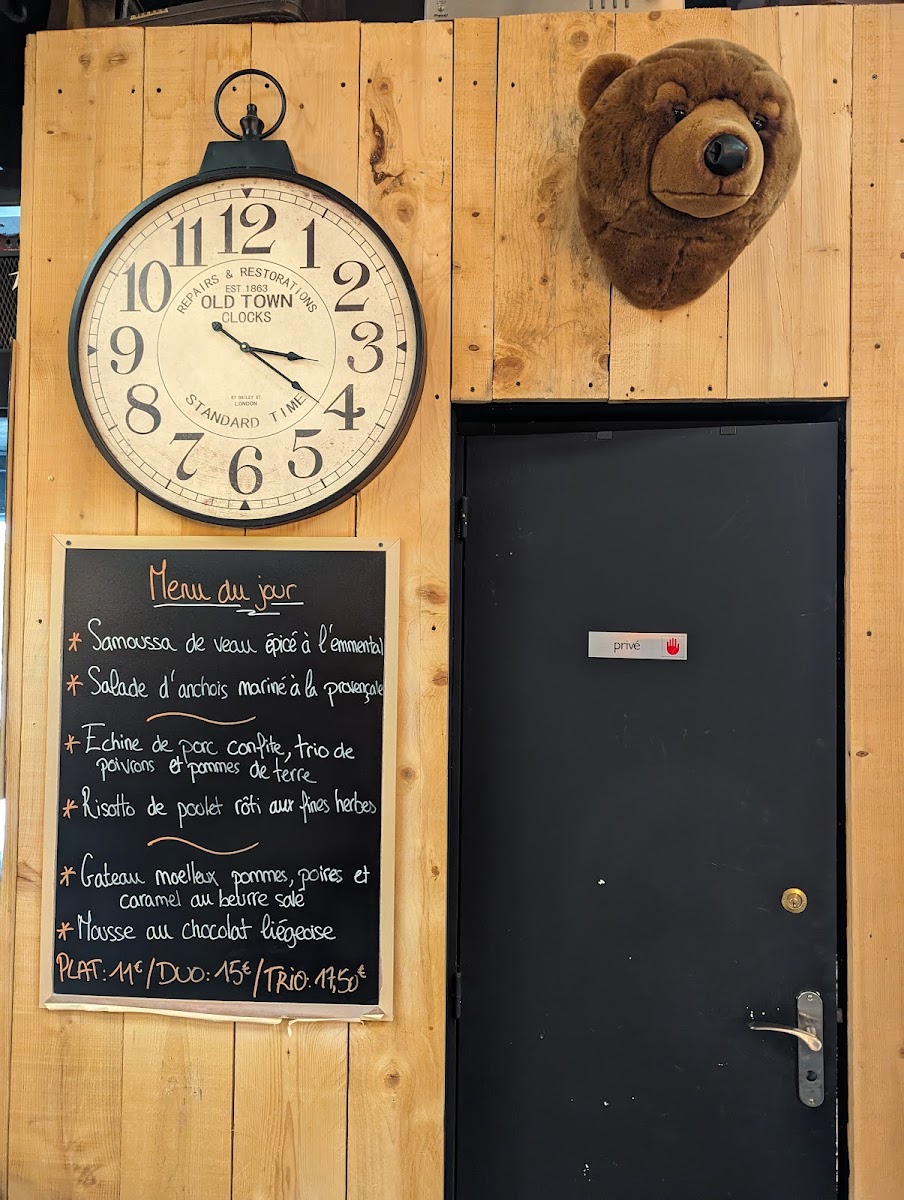 12
1
2
3
4
5
6
7
8
9
10
11
REPAIRS & RESTORATIONS
EST.1863
OLD TOWN
CLOCKS
LONDON
STANDARD TIME
Menu du jour
* Samoussa de veau épicé à l'émmental
* Salade d'anchois mariné à la provençale
* Echine de porc confite, trio de
poivrons et pommes de terre
* Risotto de poulet rôti aux fines herbes
* Gateau moelleux pommes, poires et
caramel au beurre salé
* Mousse au chocolat liégeoise
PLAT: 11€ / DUO: 15€ / TRIO: 17,50€
privé